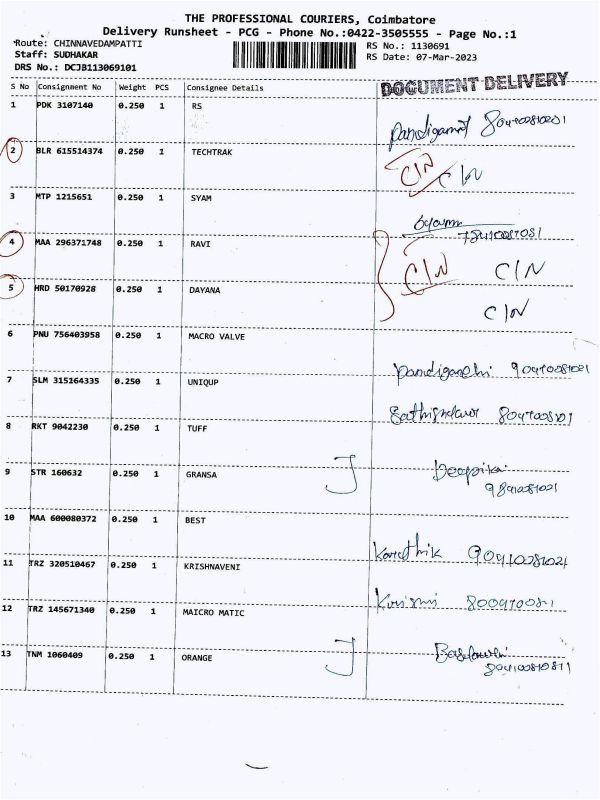 THE PROFESSIONAL COURIERS, Coimbatore
Delivery Runsheet - PCG - Phone No.:0422-3505555 - Page No.:1
Route: CHINNAVEDAMPATTI
Staff: SUDHAKAR
DRS No.: DCJB113069101
RS No.: 1130691
RS Date: 07-Mar-2023
DOCUMENT DELIVERY
S No Consignment No Weight PCS Consignee Details
1 PDK 3107140 0.250 1 RS
2 BLR 615514374 0.250 1 TECHTRAK
C/N C/N
3 MTP 1215651 0.250 1 SYAM
4 MAA 296371748 0.250 1 RAVI
C/N C/N
5 HRD 50170928 0.250 1 DAYANA
C/N
6 PNU 756403958 0.250 1 MACRO VALVE
7 SLM 315164335 0.250 1 UNIQUP
8 RKT 9042230 0.250 1 TUFF
9 STR 160632 0.250 1 GRANSA
Deepika
10 MAA 600080372 0.250 1 BEST
11 TRZ 320510467 0.250 1 KRISHNAVENI
12 TRZ 145671340 0.250 1 MAICRO MATIC
13 TNM 1060409 0.250 1 ORANGE